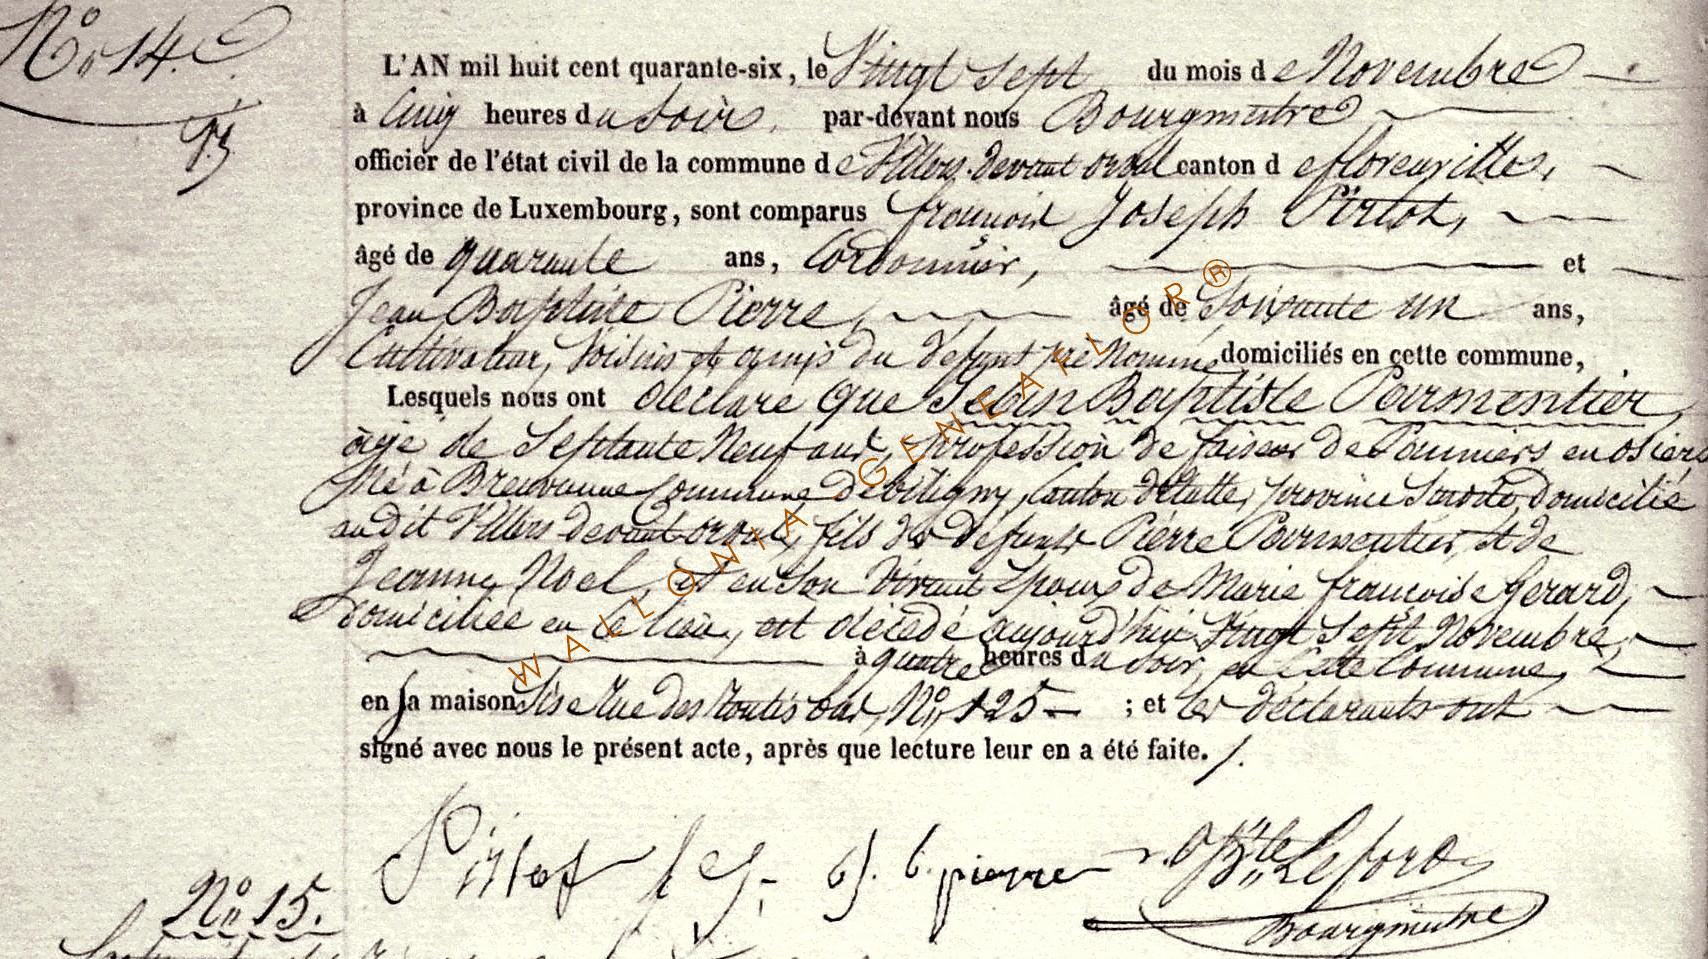 No 14.
L'AN mil huit cent quarante-six, le Vingt Sept du mois de Novembre
à Cinq heures du Soir, par-devant nous Bourgmestre
officier de l'état civil de la commune de Villers devant orval canton de florenville,
province de Luxembourg, sont comparus françois Joseph Pirlot,
âgé de quarante ans, Cordonnier, et
Jean Baptiste Pierre, âgé de Soixante un ans,
Cultivateur, Voisins et amis du défunt pré Nommé domiciliés en cette commune,
Lesquels nous ont déclaré que Jean Baptiste Parmentier,
âgé de Septante Neuf ans, profession de faiseur de Panniers en osiers
Né à Breuvanne Commune de Canton province domicilié
au dit Villers devant orval, fils de défunts Pierre Parmentier, et de
Jeanne Noel, et en Son Vivant Epoux de Marie françoise Gerard,
domiciliée en ce lieu, est décédé aujourd'hui Vingt Sept Novembre,
à quatre heures du Soir, en Cette Commune,
en Sa maison Sise Rue des bas, No 125 ; et les déclarants ont
signé avec nous le présent acte, après que lecture leur en a été faite.
Pirlot f J. J. b. pierre Bte Leford
Bourgmestre
No 15.
WALLONIA GENEAFLOR®